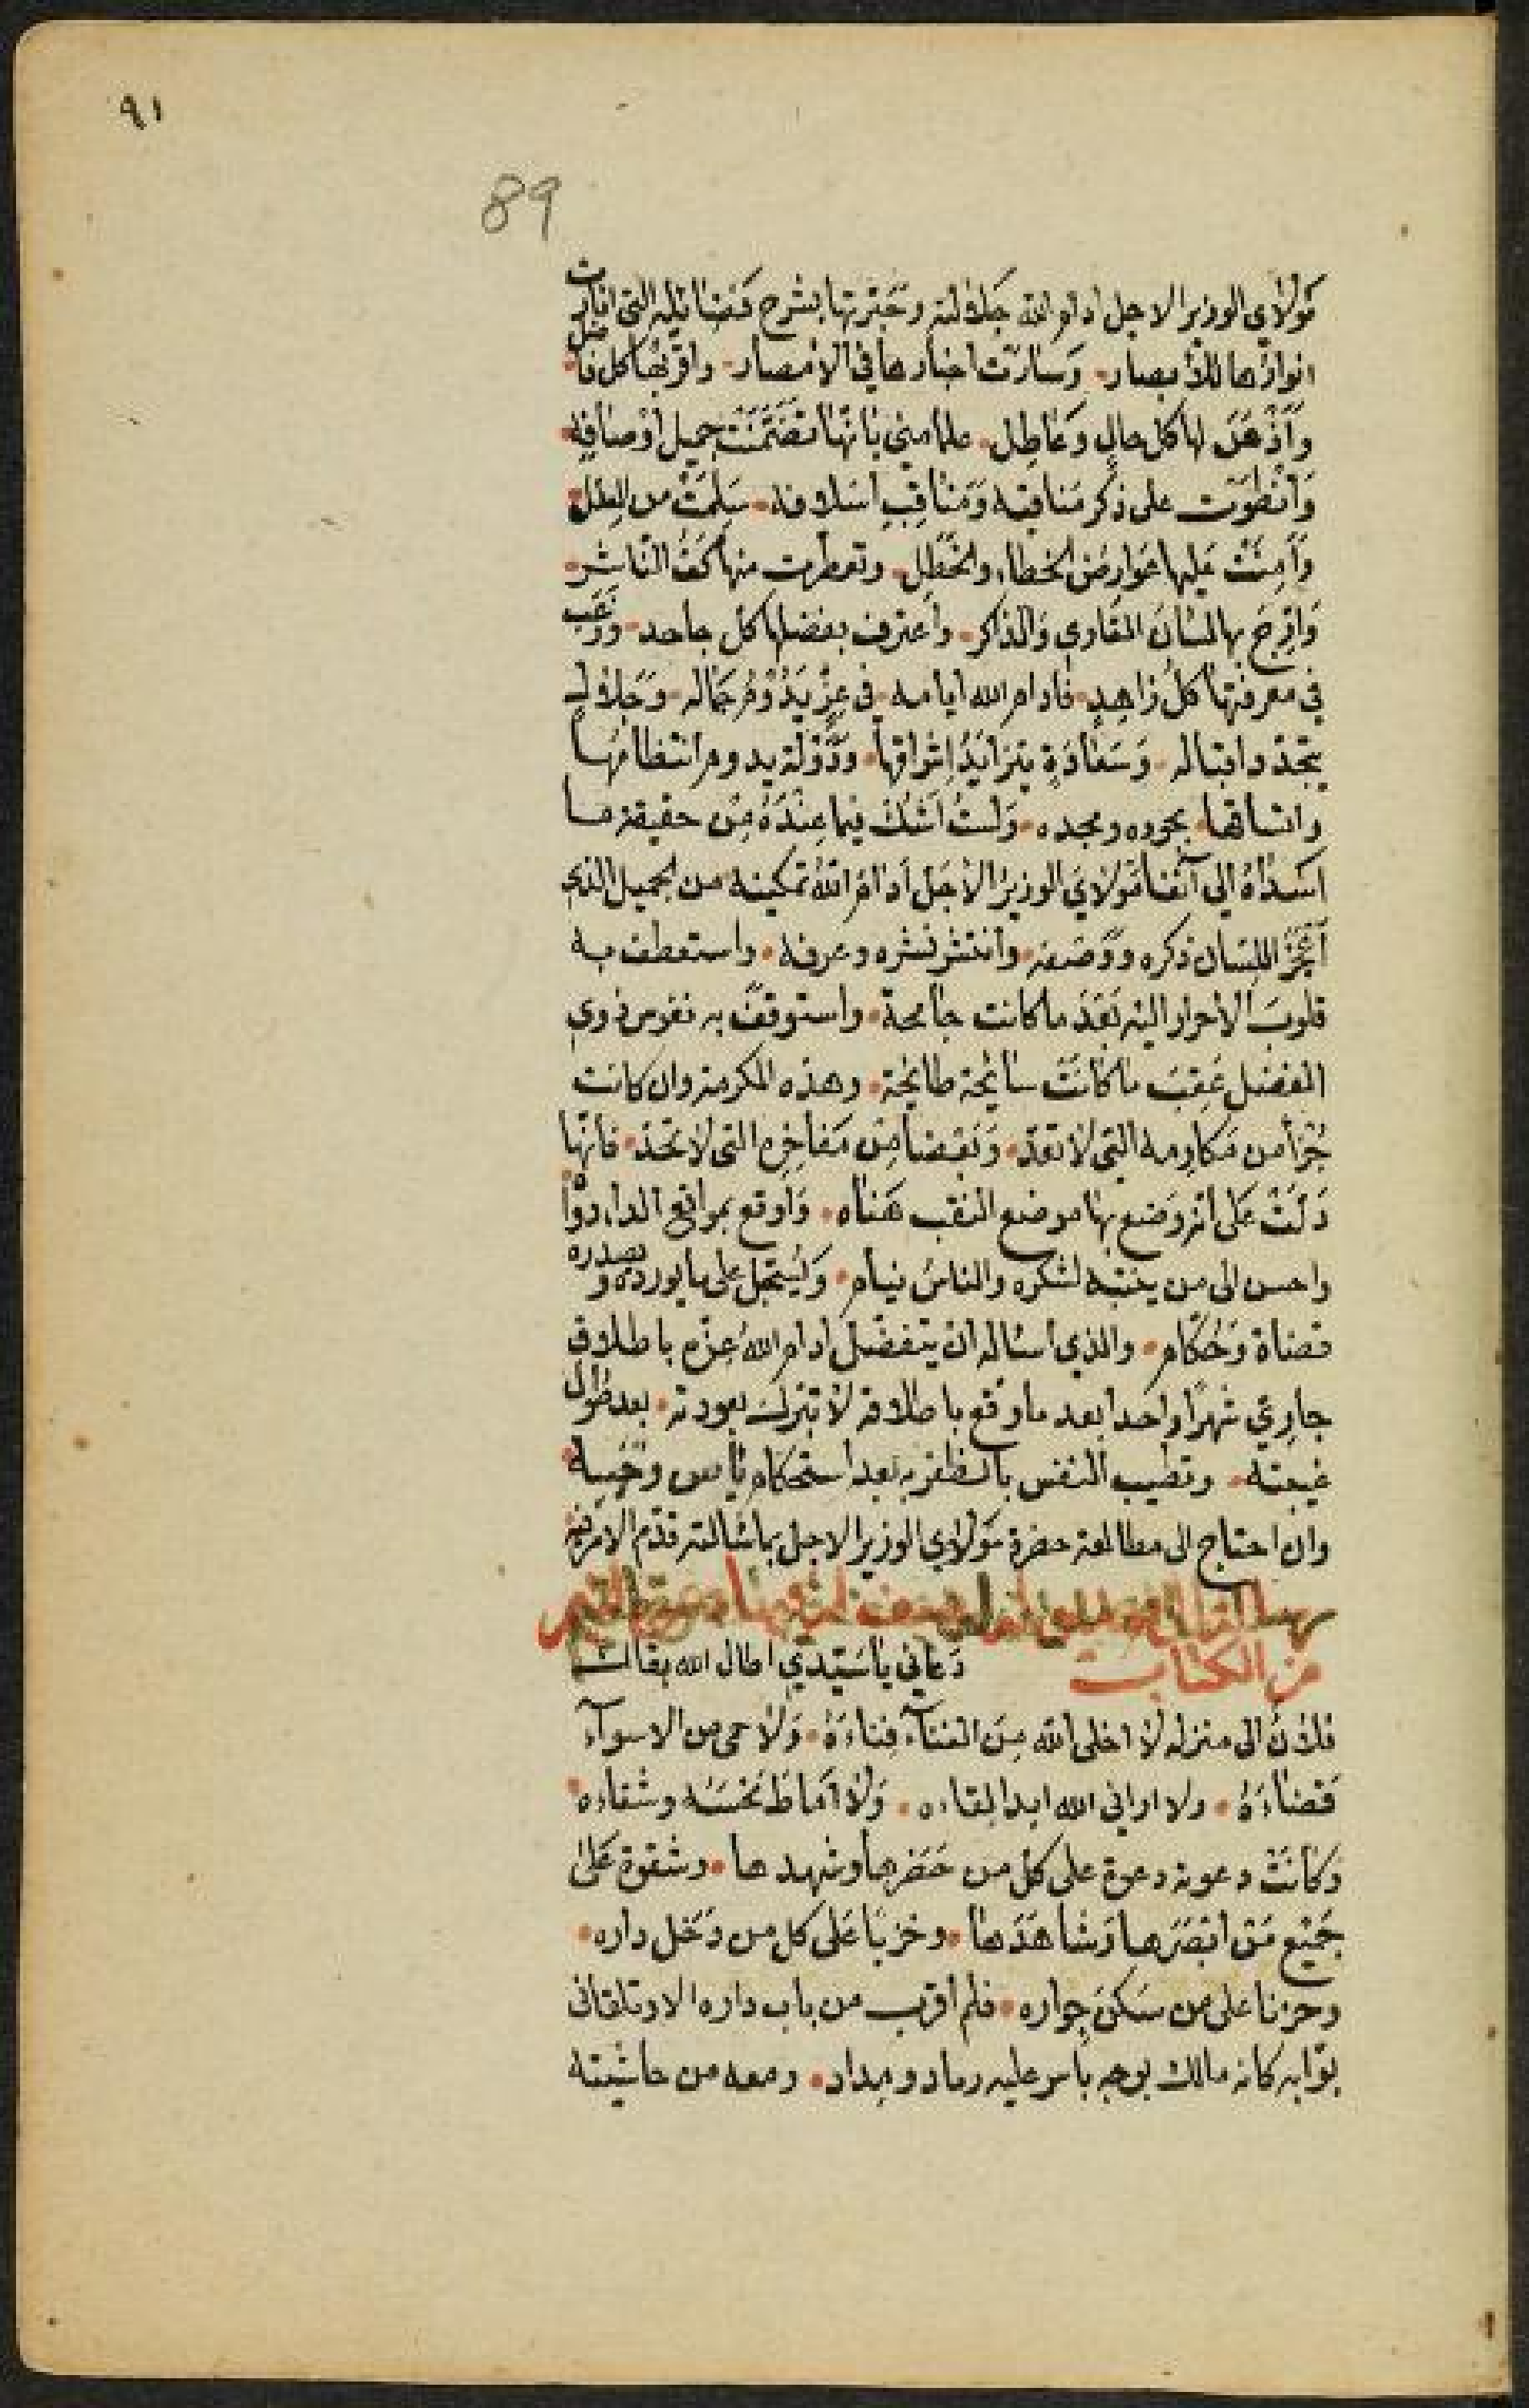 ٩١
89
مَولاي الوزير الاجل ادام الله جَلالته وحَبّرتها بشرح فَضَائله التي انارت
انوارُها للأبصار وسَارَت اخبارها في الامصار واقرّ بها كل فاضل
وَأذعَنَ لها كل حالٍ وعَاطِل علما مني بانّها تضَمّنَت جميل اوصَافِه
وَانطَوَت على ذكر مَناقبه وَمَناقِبِ اسلافه سَلِمَت من العِلل
وَأمِنَت عَليها عَوارضَ الخطاء والخَطَلِ وتعطرت منها كَفُ النّاشِر
وَاَرِجَ بها لسَان القَاري والذاكر واعترف بفضلها كل جاحد وَرغَب
في معرفتها كل زاهدٍ فادام الله ايامه في عِزٍّ يَدُومُ جَماله وَجَلالٍ
يتجدّد اقباله وَسَعَادَةٍ يَتزايَدُ اِشراقها ودَوْلَة يدوم انتظامُها
واتساقها بجوده ومجده وَلستُ اَشك فيما عِندَهُ مِن حقيقة ما
اَسدَاهُ اِلي آنفا مَولايَ الوزيرُ الأجَل أدامَ الله تمكينه من الجميل الذي
أعْجَزَ اللِسَان ذكره وَوَصفه وانتشر نشره وعرفه واستعطف به
قلوبَ الاحرار اليه بَعْدَ ما كانت جامحة واستوقفَ به نفوس ذوي
الفضل عَقِبَ ما كانَتْ سَائِحة طايحة وهذه المكرمة وان كانت
جُزأ من مَكارِمه التي لا تعَدّ وبَعْضا مِن مَفاخِرهِ التي لا تحدّ فانّها
دَلَتْ على انه وَضع بها موضع النقب هَناه وَاوقع بمواقع الداء دَوَاه
واحسن الى من ينتبه لشكره والناسُ نيام وَيُسَجل على ما يورده ويصدره
قضاة وَحُكام والذي اسئاله ان يتفضّل ادام اللهُ عِزّه باطلاق
جارِيّ شهرًا واحدا بعد ما وقع باطلاقه لأتبرك بعودته بعد طول
غيبته وتطيب النفس بالظفر به بعد استحكام يأس وخَيبة
وان احتاج الى مطالعة حضرة مَولاي الوزير الاجل بما سَألته قدّم الامر فيه
من الكتاب دَعاني يا سَيّدي اطال الله بقاك
فلانٌ الى منزله لا اخلى الله مِنَ الفنآء فِناءَهُ وَلا حمى من الاسوآء
فضاءَهُ ولا اراني الله ابدا لقاءه وَلا أماطَ نَحْسَه وشقاءه
وَكانَت دعوته دعوة على كل من حَضرها وشهدها وشقوة عَلى
جَميْع مَن أبْصَرها وَشاهَدَها وخزيًا عَلى كل من دَخل داره
وحزنا على من سَكن جِواره فلم اقرب من باب داره الا وتلقاني
بوّابه كانه مالك بوجه باسر عليه رماد ومداد ومعه من حاشيته